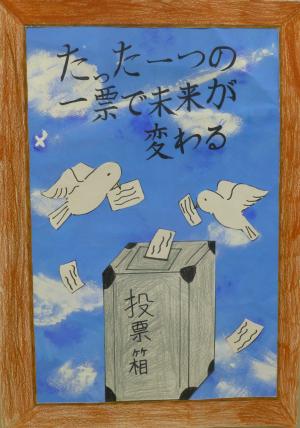 たった一つの
一票で未来が
変わる
投票箱